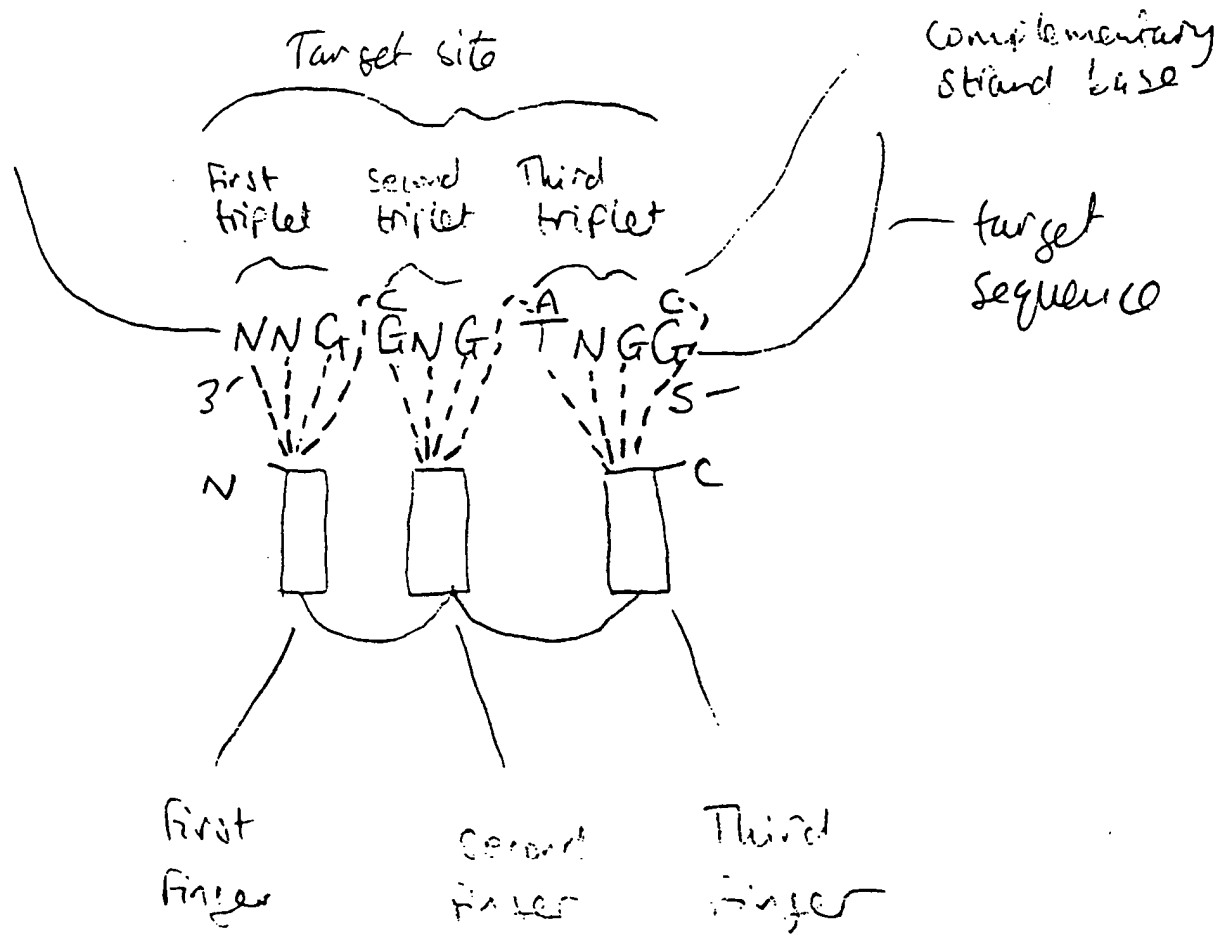 Target site
complementary
strand base
First
triplet
Second
triplet
Third
triplet
target
sequence
C
A
C
NNG GNG T NGG
3'
5
N
C
First
Finger
Second
Finger
Third
Finger